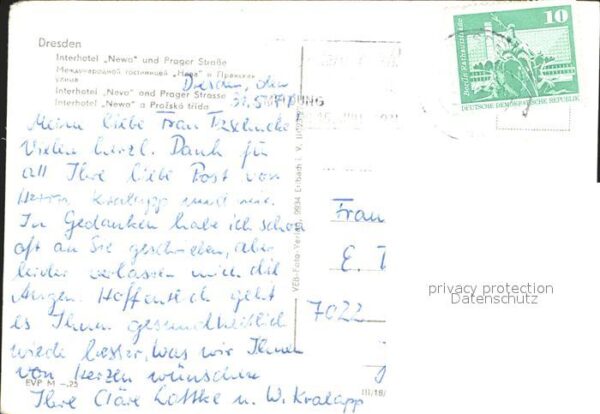 Dresden
Interhotel „Newa" und Prager Straße
Международной гостиницей „Нева" и Пражская улица
Interhotel „Neva" and Prager Strasse
Interhotel „Newa" a Pražská třída
Dresden, den
31.5.
Meine liebe Frau
Vielen herzl. Dank für
all Ihre liebe Post von
Herrn Kralapp und mir.
In Gedanken habe ich schon
oft an Sie geschrieben, aber
leider verlassen mich die
Augen. Hoffentlich geht
es Ihnen gesundheitlich
wieder besser, was wir Ihnen
von Herzen wünschen
Ihre Cläre Lattke u. W. Kralapp
EVP M –,25
VEB Foto-Verlag, 9934 Erlbach i. V.
III/18/
10
Neptun Rathausstraße
DEUTSCHE DEMOKRATISCHE REPUBLIK
Frau
E. T
7022
privacy protection
Datenschutz